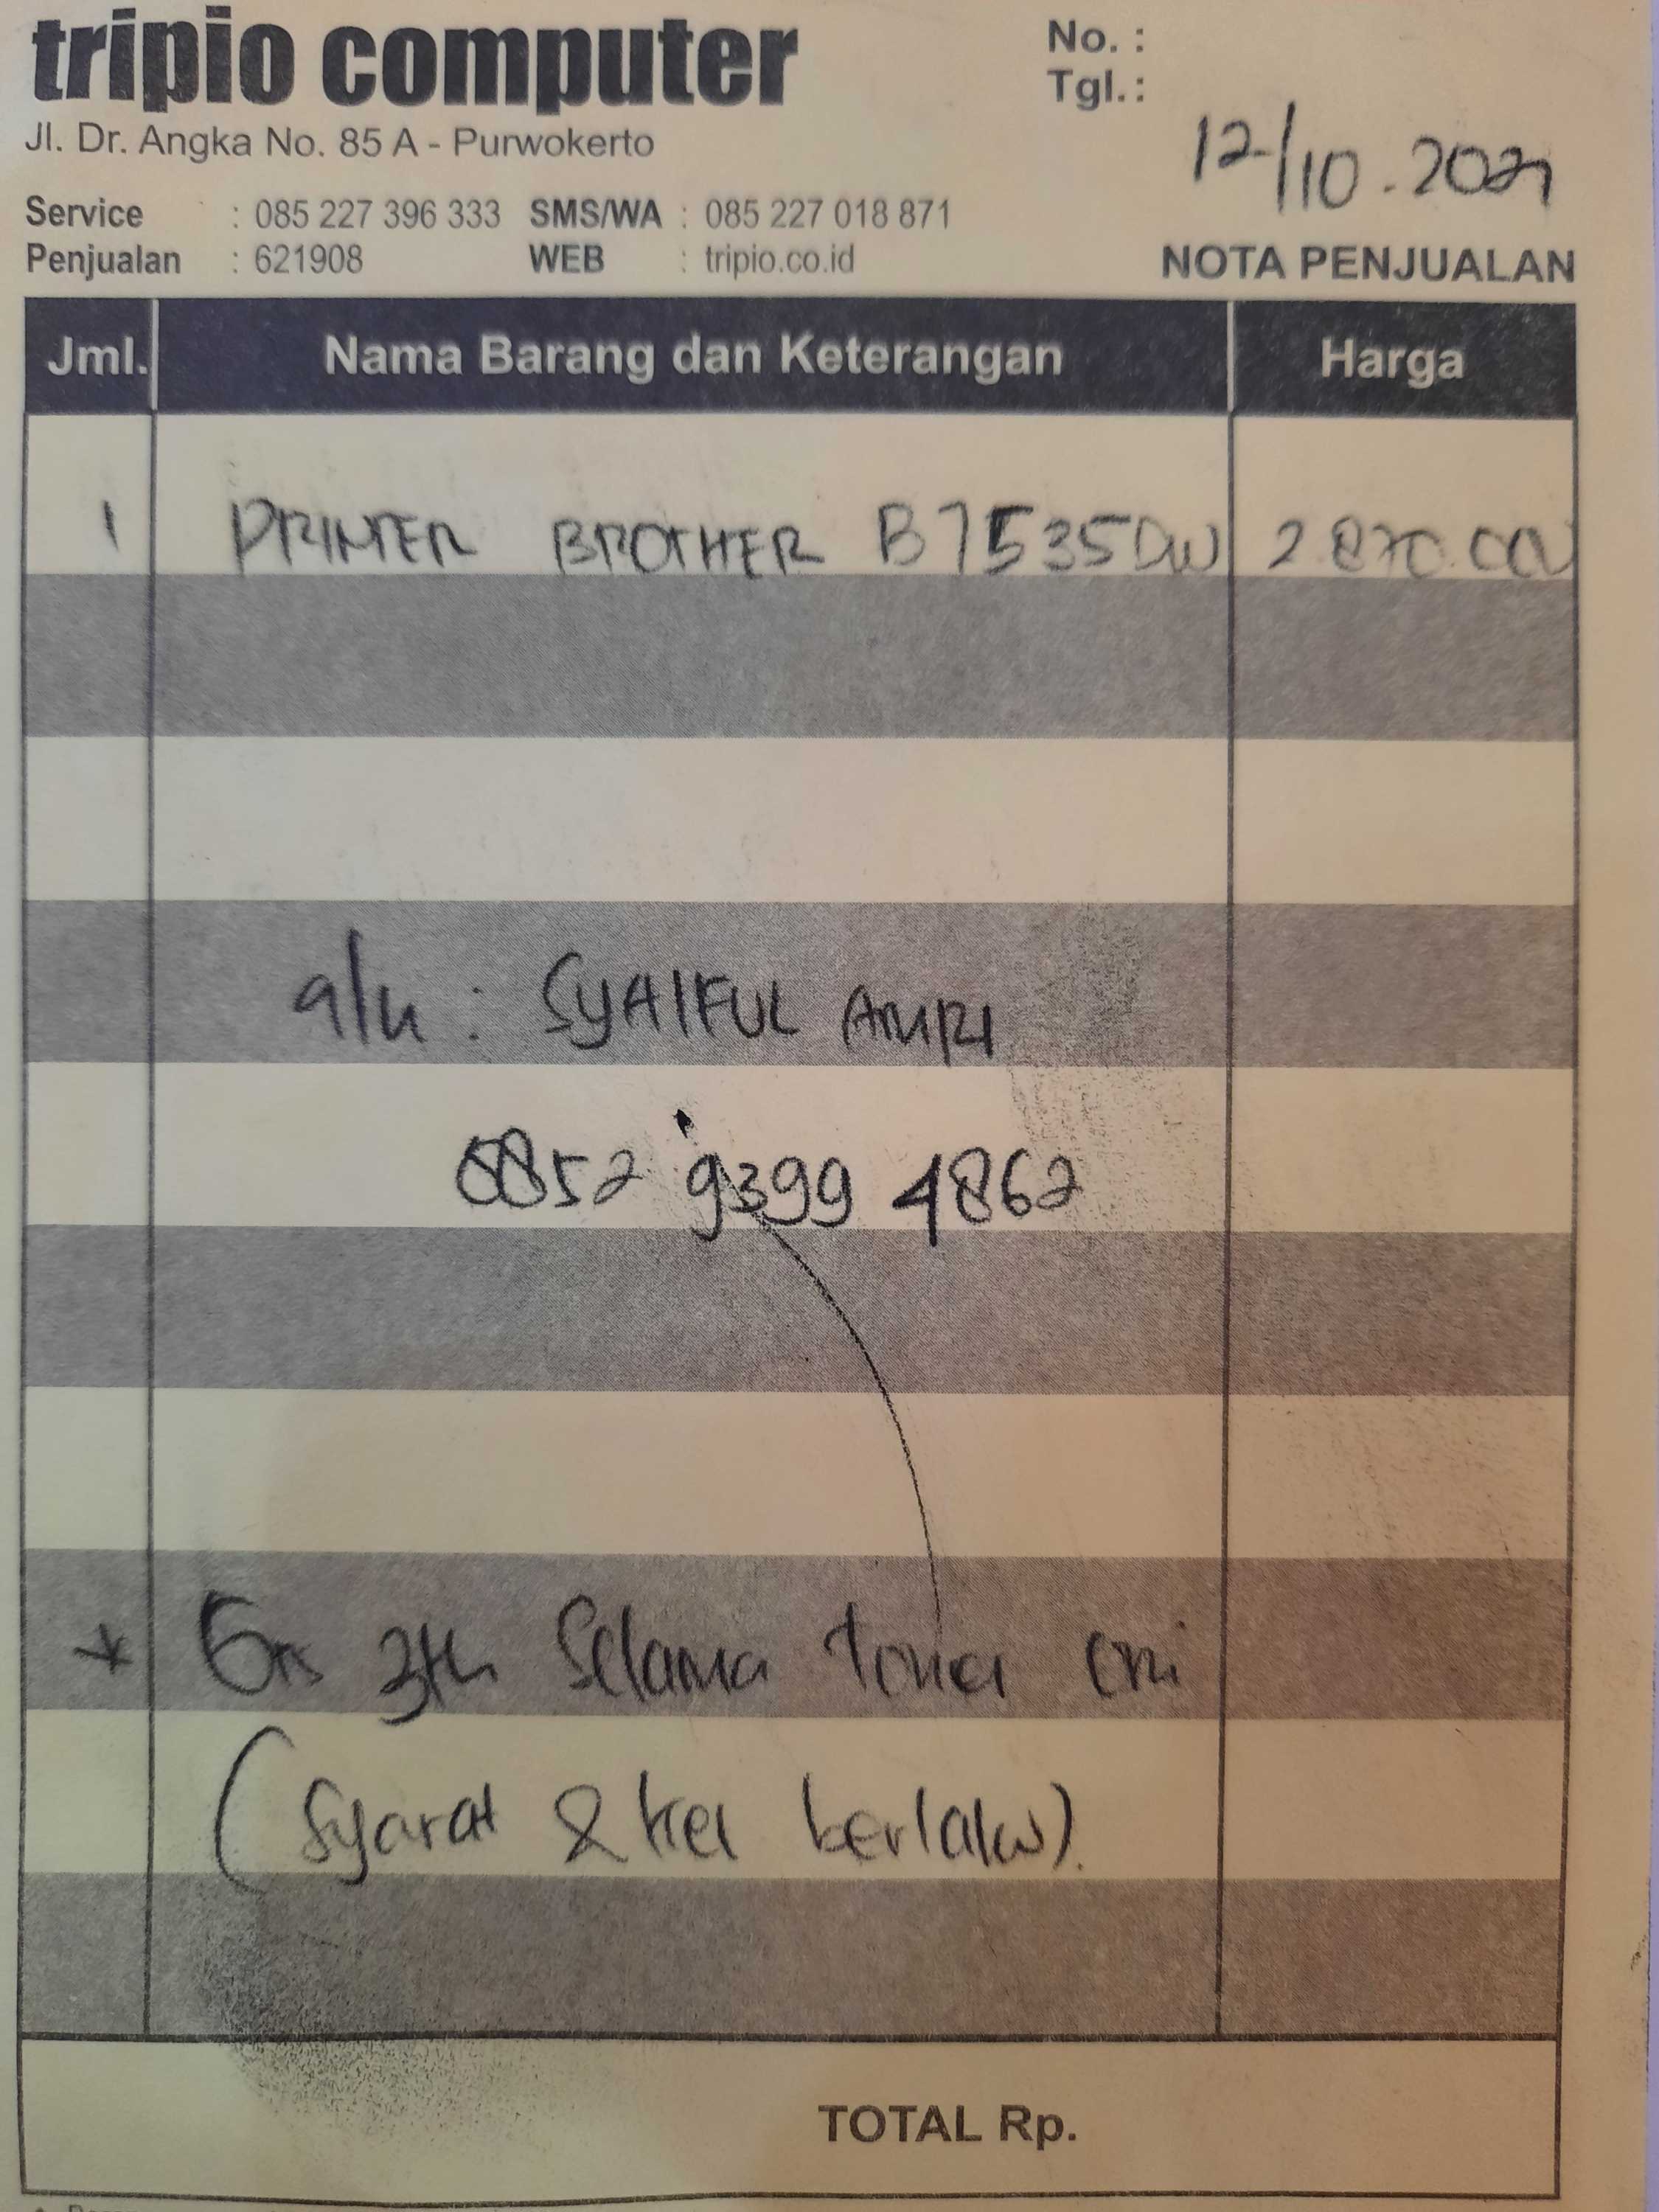 tripio computer
Jl. Dr. Angka No. 85 A - Purwokerto
No. :
Tgl. :
12/10.2021
Service : 085 227 396 333 SMS/WA : 085 227 018 871
Penjualan : 621908 WEB : tripio.co.id
NOTA PENJUALAN
Jml. Nama Barang dan Keterangan Harga
1 PRINTER BROTHER B7535DW 2.870.000
a/n : SYAIFUL AMRI
0852 9399 4862
* Grs 3th Selama toner ori
(Syarat & ket berlaku).
TOTAL Rp.